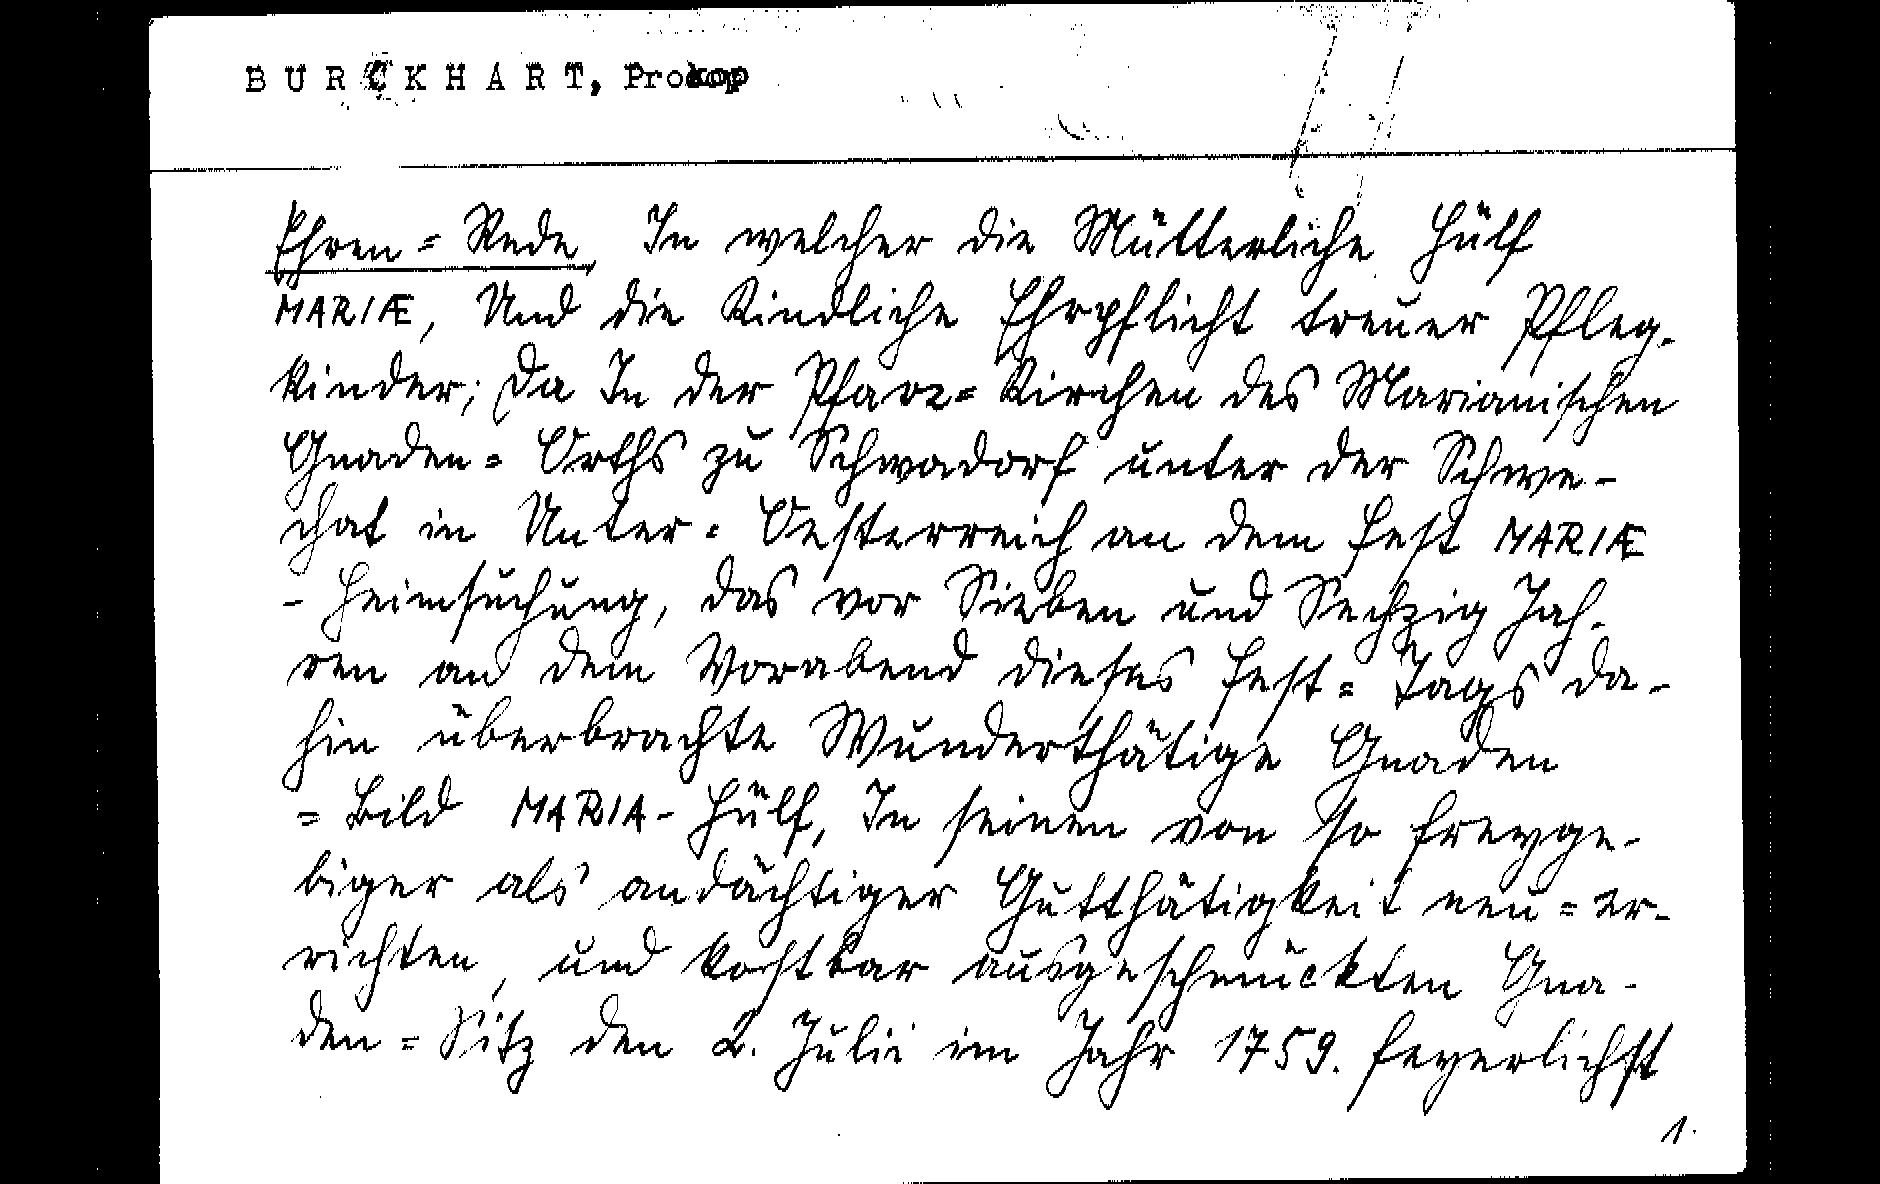 BURCKHART, Prokop
Ehren=Rede, In welcher die Mütterliche Hülf
MARIÆ, Und die Kindliche Ehrpflicht treuer Pfleg-
kinder; Da In der Pfarr=Kirchen des Marianischen
Gnaden=Orths zu Schwadorf unter der Schwe-
chat in Unter=Oesterreich an dem Fest MARIÆ
-Heimsuchung, das vor Sieben und Sechzig Jah-
ren an dem Vorabend dieses Fest=Tags da-
hin überbrachte Wunderthätige Gnaden
=Bild MARIA-Hülf, In seinen von so freyge-
biger als andächtiger Gutthätigkeit neu=er-
richten, und kostbar ausgeschmückten Gna-
den=Sitz den 2. Julii im Jahr 1759. feyerlichst
1.